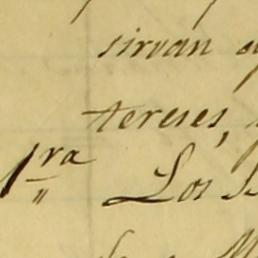 sirvan
tereses,
1ra Los